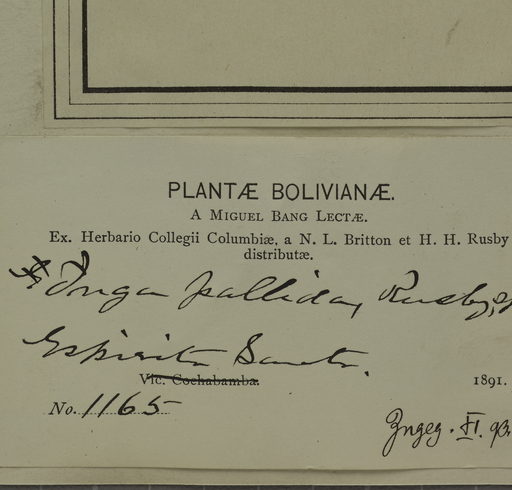 PLANTÆ BOLIVIANÆ.
A MIGUEL BANG LECTÆ.
Ex. Herbario Collegii Columbiæ, a N. L. Britton et H. H. Rusby
distributæ.
Inga pallida, Rusby,
Espirito Santo.
Vic. Cochabamba.
1891.
No. 1165
XI. 93.